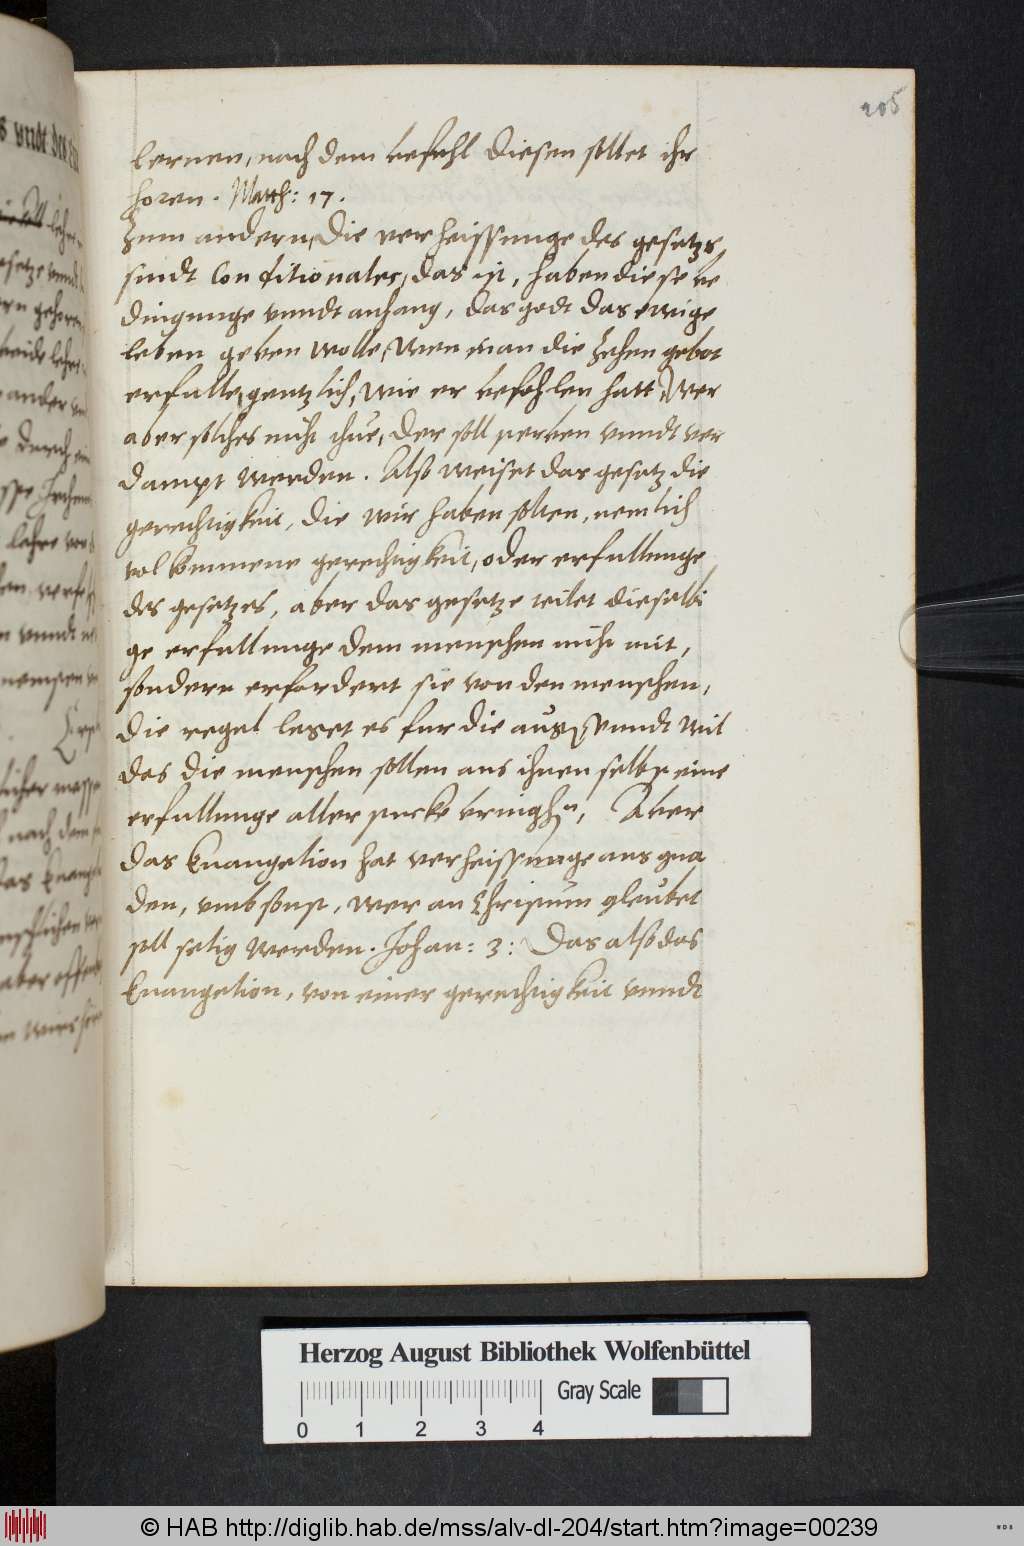 205
lernen, nach dem befehl diesen sollet ihr
horen. Matth: 17.
Zum andern, die verheissunge des gesetzs,
sindt Conditionales, das ist, haben diese be
dingunge vnndt anhang, das godt das ewige
leben geben wolle, wen man die Zehen gebot
erfulle, gentzlich, wie er befohlen hatt, Wer
aber solches nicht thue, der soll sterben vnndt ver
dampt werden. Also weiset das gesetz die
gerechtigkeit, die wir haben solten, nemlich
volkommene gerechtigkeit, oder erfullunge
des gesetzes, aber das gesetze teilet dieselbi
ge erfullunge dem menschen nicht mit,
sondern erfordert sie von den menschen,
die regel leset es fur die aus, vnndt wil
das die menschen sollen aus ihnen selbst eine
erfullunge aller stucke bringen, Aber
das Euangelion hat verheissunge aus gna
den, vmb sonst, wer an Christum gleubet
soll selig werden. Johan: 3: Das also das
Euangelion, von einer gerechtigkeit vnndt
Herzog August Bibliothek Wolfenbüttel
0 1 2 3 4
Gray Scale
© HAB http://diglib.hab.de/mss/alv-dl-204/start.htm?image=00239